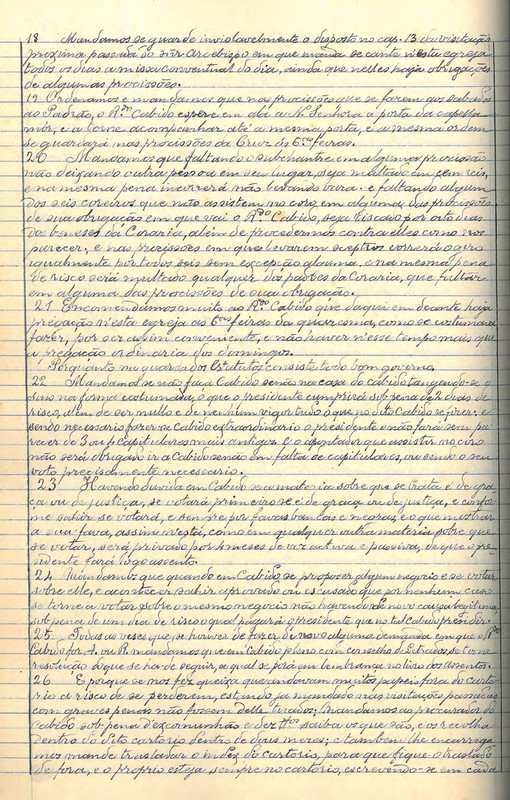 18 Mandamos se guarde inviolavelmente o disposto no cap. 13 da visitação
proxima passada do snr Arcebispo em que manda se cante n'esta egreja
todos os dias a missa conventual do dia, ainda que nelles haja obrigações
de algumas procissões.
19 Ordenamos e mandamos que nas procissões que se fazem aos sabados
ao Padrão, o Rdo Cabido espere em pé a N. Senhora á porta da capella
mór, e a torne acompanhar até a mesma porta, e a mesma ordem
se guardará nas procissões da Cruz ás 6as feiras.
20 Mandamos que faltando o subchantre em alguma procissão
não deixando outra pessoa em seu lugar, seja multado em cem reis,
e na mesma pena incorrerá não levando vara. e faltando algum
dos seis coreiros que não assistem no coro, em alguma das procissões
de sua obrigação em que vai o Rdo Cabido, seja riscado por oito dias
dos benesses da Coraria, além de procedermos contra elles como nos
parecer, e nas procissões em que levarem sceptros correrá o giro
igualmente por todos seis sem excepção alguma. e na mesma pena
de risco será multado qualquer dos padres da Coraria, que faltar
em alguma das procissões de sua obrigação.
21 Encomendamos muito ao Rdo Cabido que daqui em deante haja
pregação n'esta egreja as 6as feiras da quaresma, como se costumava
fazer, por ser assim conveniente, e não haver n'esse tempo mais que
a pregação ordinaria dos domingos.
Porquanto na guarda dos Estatutos consiste todo bom governo
22 Mandamos se não faça Cabido senão na casa do cabido tangendo-se o
sino na forma costumada, o que o presidente cumprirá sob pena de 2 dias de
risco, além de ser nullo e de nenhum vigor tudo o que no dito Cabido se fizer; e
sendo necessario fazer-se Cabido extraordinario o presidente o não fará sem pa-
recer de 3 ou 4 capitulares mais antigos. e o apontador que assistir no coro
não será obrigado ir a Cabido senão em falta de capitulares, ou sendo o seu
voto precisamente necessario.
23 Havendo duvida em Cabido se a materia sobre que se trata é de gra-
ça ou de justiça, se votará primeiro se é de graça ou de justiça, e confor-
me sahir se votará, e sempre por favas brancas e negras; e o que mostrar
a sua fava, assim n'esta, como em qualquer outra materia sobre que
se votar, será privado por 4 meses de voz activa e passiva, de que o pre-
sidente fará logo assento.
24 Mandamos que quando em Cabido se propozer algum negocio e se votar
sobre elle, e acontecer sahir aprovado ou escusado que por nenhum caso
se torne a votar sobre o mesmo negocio não havendo de novo causa legitima
sob pena de um dia de risco o qual pagará o presidente que no tal cabido presidir.
25. Todas as vezes que se houver de fazer de novo alguma demanda em que o Rdo
Cabido fôr A. ou R. mandamos que em Cabido pleno com conselho de letrados se tome
resolução do que se ha de seguir, a qual se porá em lembrança no livro dos assentos.
26 E porque se nos fez queixa que andavam muitos papeis fora do carto-
rio a risco de se perderem, estando já mandado nas visitações passadas
com graves penas não fossem delle tirados; Mandamos ao procurador do
Cabido sob pena d'excomunhão e dez saiba os que são, e os recolha
dentro do dito cartorio dentro de dous meses; e tambem lhe encarrega-
mos mande trasladar o index do cartorio, para que fique o traslado
de fora, e o proprio esteja sempre no cartorio, escrevendo-se em cada